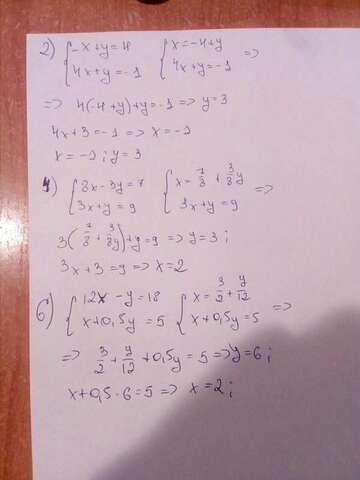 2) { -x+y=4 { x=-4+y =>
4x+y=-1 4x+y=-1
=> 4(-4+y)+y=-1 => y=3
4x+3=-1 => x=-1
x=-1; y=3
4) { 8x-3y=7 { x=7/8+3/8y =>
3x+y=9 3x+y=9
3(7/8+3/8y)+y=9 => y=3;
3x+3=9 => x=2
6) { 12x-y=18 { x=3/2+y/12 =>
x+0,5y=5 x+0,5y=5
=> 3/2+y/12+0,5y=5 => y=6;
x+0,5·6=5 => x=2;